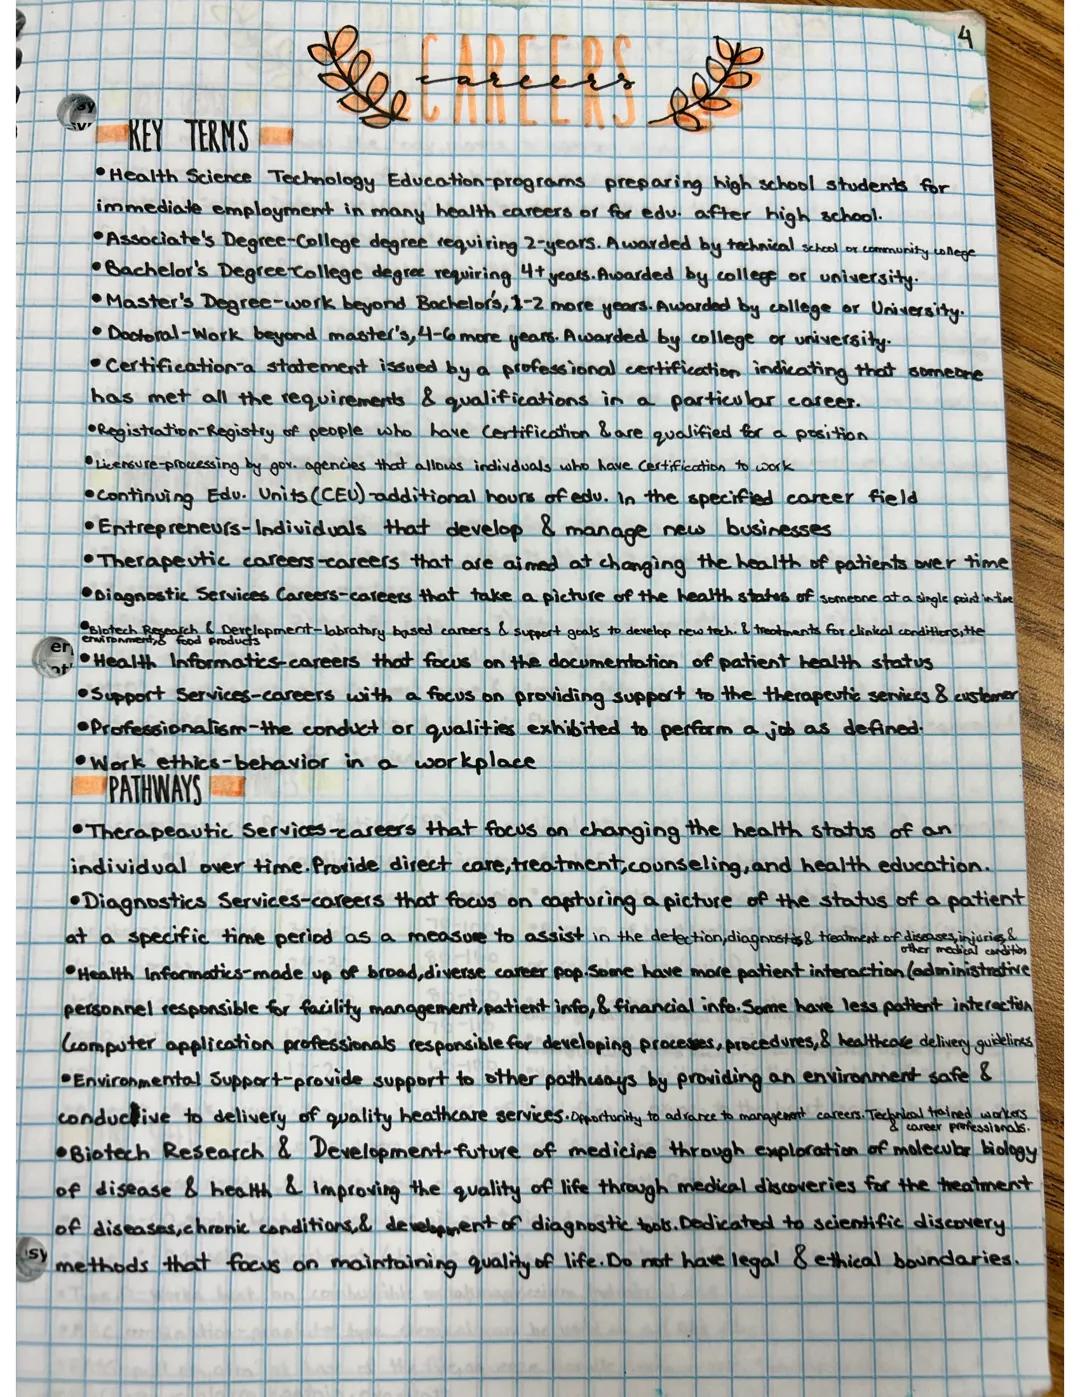 4
CAREERS
careers
KEY TERMS
•Health Science Technology Education-programs preparing high school students for
immediate employment in many health careers or for edu. after high school.
•Associate's Degree-College degree requiring 2-years. Awarded by technical school or community college
•Bachelor's Degree-College degree requiring 4+ years. Awarded by college or university.
•Master's Degree-work beyond Bachelor's, 1-2 more years. Awarded by college or University.
•Doctoral-Work beyond master's, 4-6 more years. Awarded by college or university.
•Certification-a statement issued by a professional certification indicating that someone
has met all the requirements & qualifications in a particular career.
•Registration-Registry of people who have Certification & are qualified for a position
•Licensure-processing by gov. agencies that allows indivduals who have Certification to work
•Continuing Edu. Units (CEU)-additional hours of edu. in the specified career field
•Entrepreneurs-Individuals that develop & manage new businesses
•Therapeutic careers-careers that are aimed at changing the health of patients over time
•Diagnostic Services Careers-careers that take a picture of the health states of someone at a single point in time
•Biotech Research & Development-labratory based careers & support goals to develop new tech. & treatments for clinical conditions, the
environment, & food products
•Health Informatics-careers that focus on the documentation of patient health status
•Support Services-careers with a focus on providing support to the therapeutic services & customer
•Professionalism-the conduct or qualities exhibited to perform a job as defined.
•Work ethics-behavior in a workplace
PATHWAYS
•Therapeautic Services-careers that focus on changing the health status of an
individual over time. Provide direct care, treatment, counseling, and health education.
•Diagnostics Services-careers that focus on capturing a picture of the status of a patient
at a specific time period as a measure to assist in the detection, diagnostis & treatment of diseases, injuries, &
other medical conditions
•Health Informatics-made up of broad, diverse career pop. Some have more patient interaction (administrative
personnel responsible for facility management, patient info, & financial info. Some have less patient interaction
(computer application professionals responsible for developing processes, procedures, & healthcare delivery guidelines
•Environmental Support-provide support to other pathways by providing an environment safe &
conducive to delivery of quality heathcare services. Opportunity to advance to management careers. Technical trained workers
& career professionals.
•Biotech Research & Development-future of medicine through exploration of molecular biology
of disease & health & improving the quality of life through medical discoveries for the treatment
of diseases, chronic conditions, & development of diagnostic tools. Dedicated to scientific discovery
methods that focus on maintaining quality of life. Do not have legal & ethical boundaries.